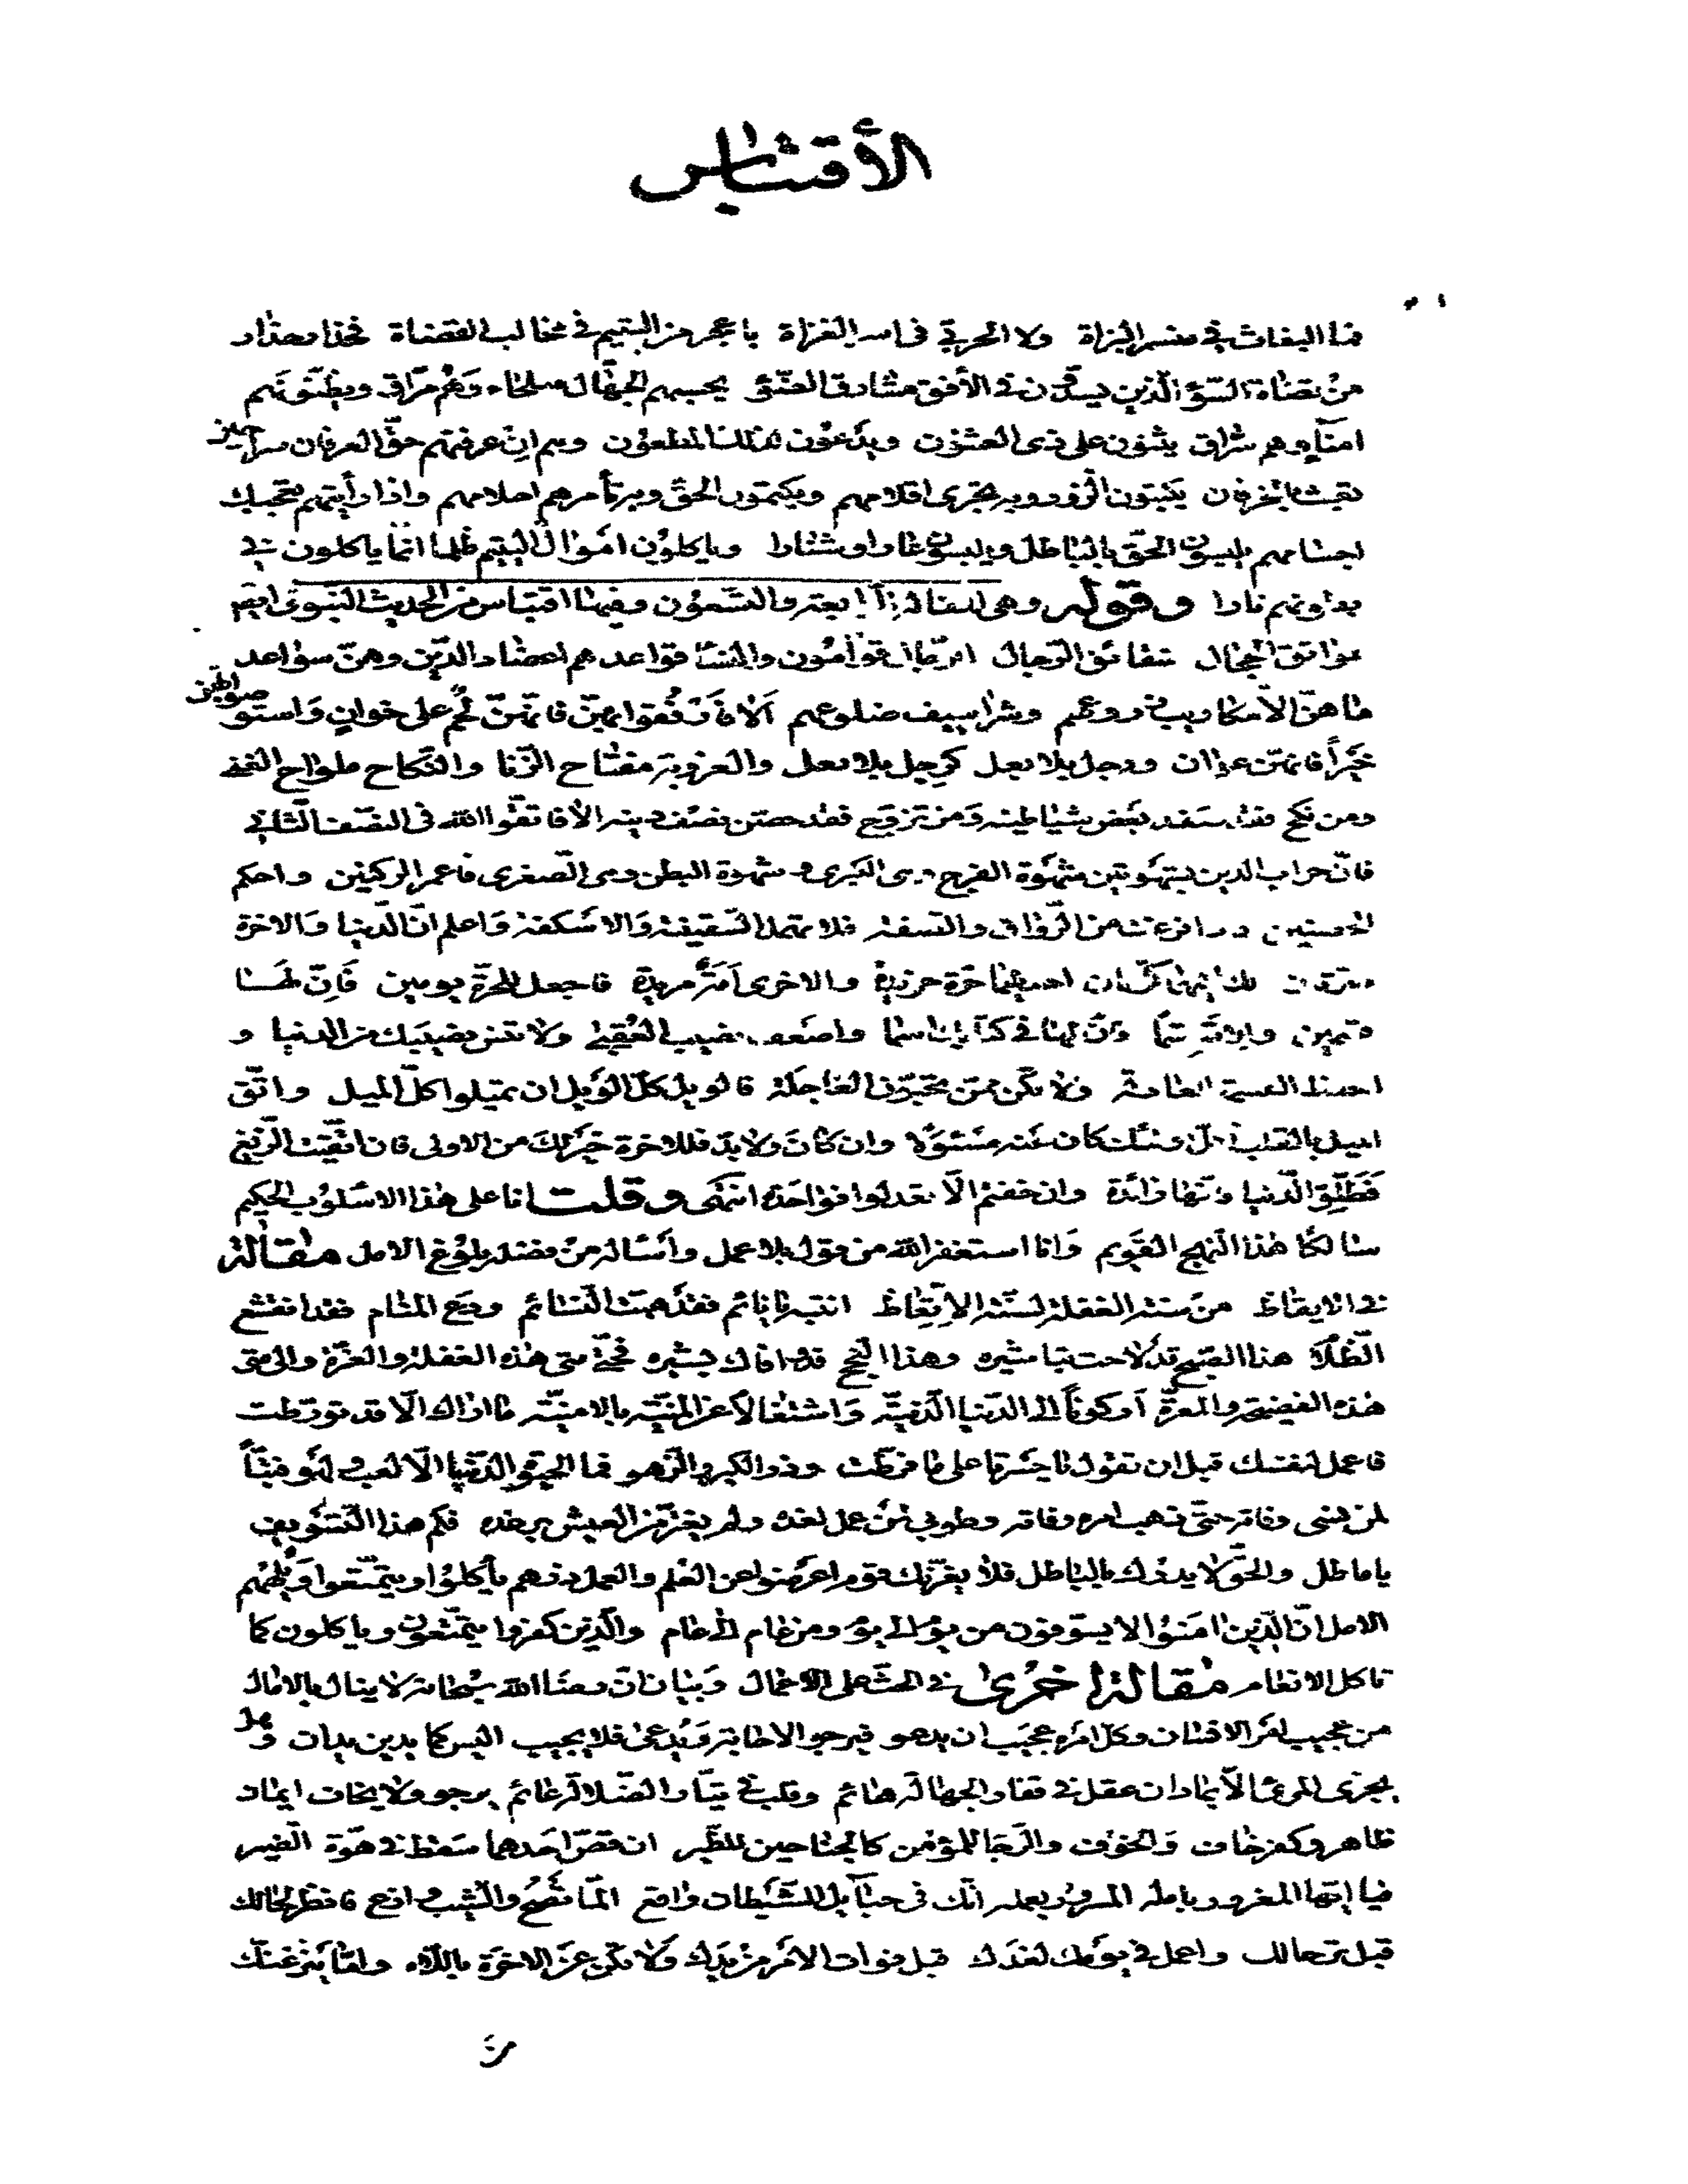 الاقتباس
فما البغاث في منسر البزاة ولا الحربي في اسر الغزاة باعجز من اليتيم في مخالب القضاة فحذار حذار
من قضاة السوء الذين يسدون في الأفق مشارق الضوء يحسبهم الجهال صلحاء وهم مراق ويظنونهم
امناء وهم سراق يثنون على ذى العشنون ويدعون وهم ان عرفتهم حق العرفان سراحين
يكتبون الزور وبه يجرى اقلامهم ويكتمون الحق وبه تأمرهم احلامهم واذا رأيتهم تعجبك
اجسامهم يلبسون الحق بالباطل ويلبسون عارا وشنارا وياكلون اموال اليتيم ظلما انما ياكلون في
بطونهم نارا وقوله وهى المقالة الرابعة والتسعون وفيها اقتباس من الحديث النبوى ايضا
عواتق الحجال شقائق الرجال الرجال قوامون والنساء قواعد هم اعضاد الدين وهن سواعد
ما هن الا مكاويب في روعهم وشراسيف ضلوعهم الا فارفقوا بهن فانهن لحم على خوان واستوصوا بهن
خيرا فانهن عوان ورجل بلا بعل كرجل بلا نعل والعزوبة مفتاح الزنا والنكاح ملواح الغنى
ومن نكح فقد صفد بعض شياطينه ومن تزوج فقد حصن نصف دينه الا فاتقوا الله في النصف الثاني
فان خراب الدين بشهوتين شهوة الفرج وهى الكبرى وشهوة البطن وهى الصغرى فاعمر الركنين واحكم
الحصنين واذا فرغت من الرواق والسقف فلا تهمل السقيفة والاسكفة واعلم ان الدنيا والاخرة
ضرتان لك احديهما حرة حزينة والاخرى امة مريبة فاجعل للحرة يومين فان لها
قسمين وللامة قسما ولا تنس نصيبك من الدنيا و
ولا تكن ممن يحبون العاجلة فالويل كل الويل ان تميلوا كل الميل واتق
الميل بالقلب كان عنه مسئولا وان كان ولابد فللاخرة خير لك من الاولى فان اتقيت الزيغ
فطلق الدنيا فانها زائدة وان خفتم الا تعدلوا فواحدة انتهى وقلت انا على هذا الاسلوب الحكيم
سالكا هذا النهج القويم وانا استغفر الله من قول بلا عمل واسأله من فضله بلوغ الامل مقالة
في الايقاظ من سنة الغفلة لسنة الايقاظ انتبه يا نائم فقد هبت النسائم ودع المنام فقد انقشع
الظلام هذا الصبح قد لاحت تباشيره وهذا النجح قد وافاك بشيره فحتى متى هذه الغفلة والغرة والى متى
هذه الفضيحة والمعرة أركونا الى الدنيا الدنية واشتغالا عن المنية بالامنية ما اراك الا قد تورطت
فاعمل لنفسك قبل ان تقول يا حسرتا على ما فرطت وذر الكبر والزهو فما الحيوة الدنيا الا لعب ولهو فتبا
لمن نسى وفاته حتى ذهب امره وفاته وطوبى لمن عمل لغده ولم يغتر من العيش برغده فكم هذا التسويف
يا ماطل والحق لا يدرك بالباطل فلا يغرنك قوم اعرضوا عن العلم والعمل ذرهم ياكلوا ويتمتعوا ويلههم
الامل ان الذين امنوا لا يسوفون من يوم الى يوم ومن عام الى عام والذين كفروا يتمتعون وياكلون كما
تاكل الانعام مقالة اخرى في الحث على الاعمال وبيان ان رضا الله سبحانه لا ينال بالامال
من عجيب امر الانسان وكل امره عجيب ان يدعو فيرجو الاجابة ويدعى فلا يجيب اليس كما يدين يدان وهل
يجزى المرء الا بما دان عقل في قفار الجهالة هائم وقلب في تيار الضلالة عائم يرجو ولا يخاف ايمان
ظاهر وكفر خاف والخوف والرجا للمؤمن كالجناحين للطير ان قص احدهما سقط في هوة الضير
فيا ايها المغرور بامله المسرور بعمله انك في حبائل الشيطان واقع الما تصح والشيب وازع فانظر لحالك
قبل ترحالك واعمل في يومك لغدك قبل فوات الامر من يدك ولا تكن عن الاخرة باللاه واما ينزغنك
من